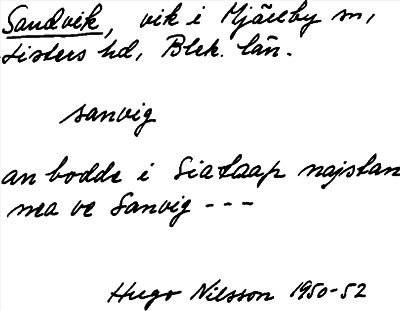 Sandvik, vik i Mjällby sn,
Listers hd, Blek. län.
sanvig
an bodde i Siataap najstan
nea ve Sanvig ---
Hugo Nilsson 1950-52